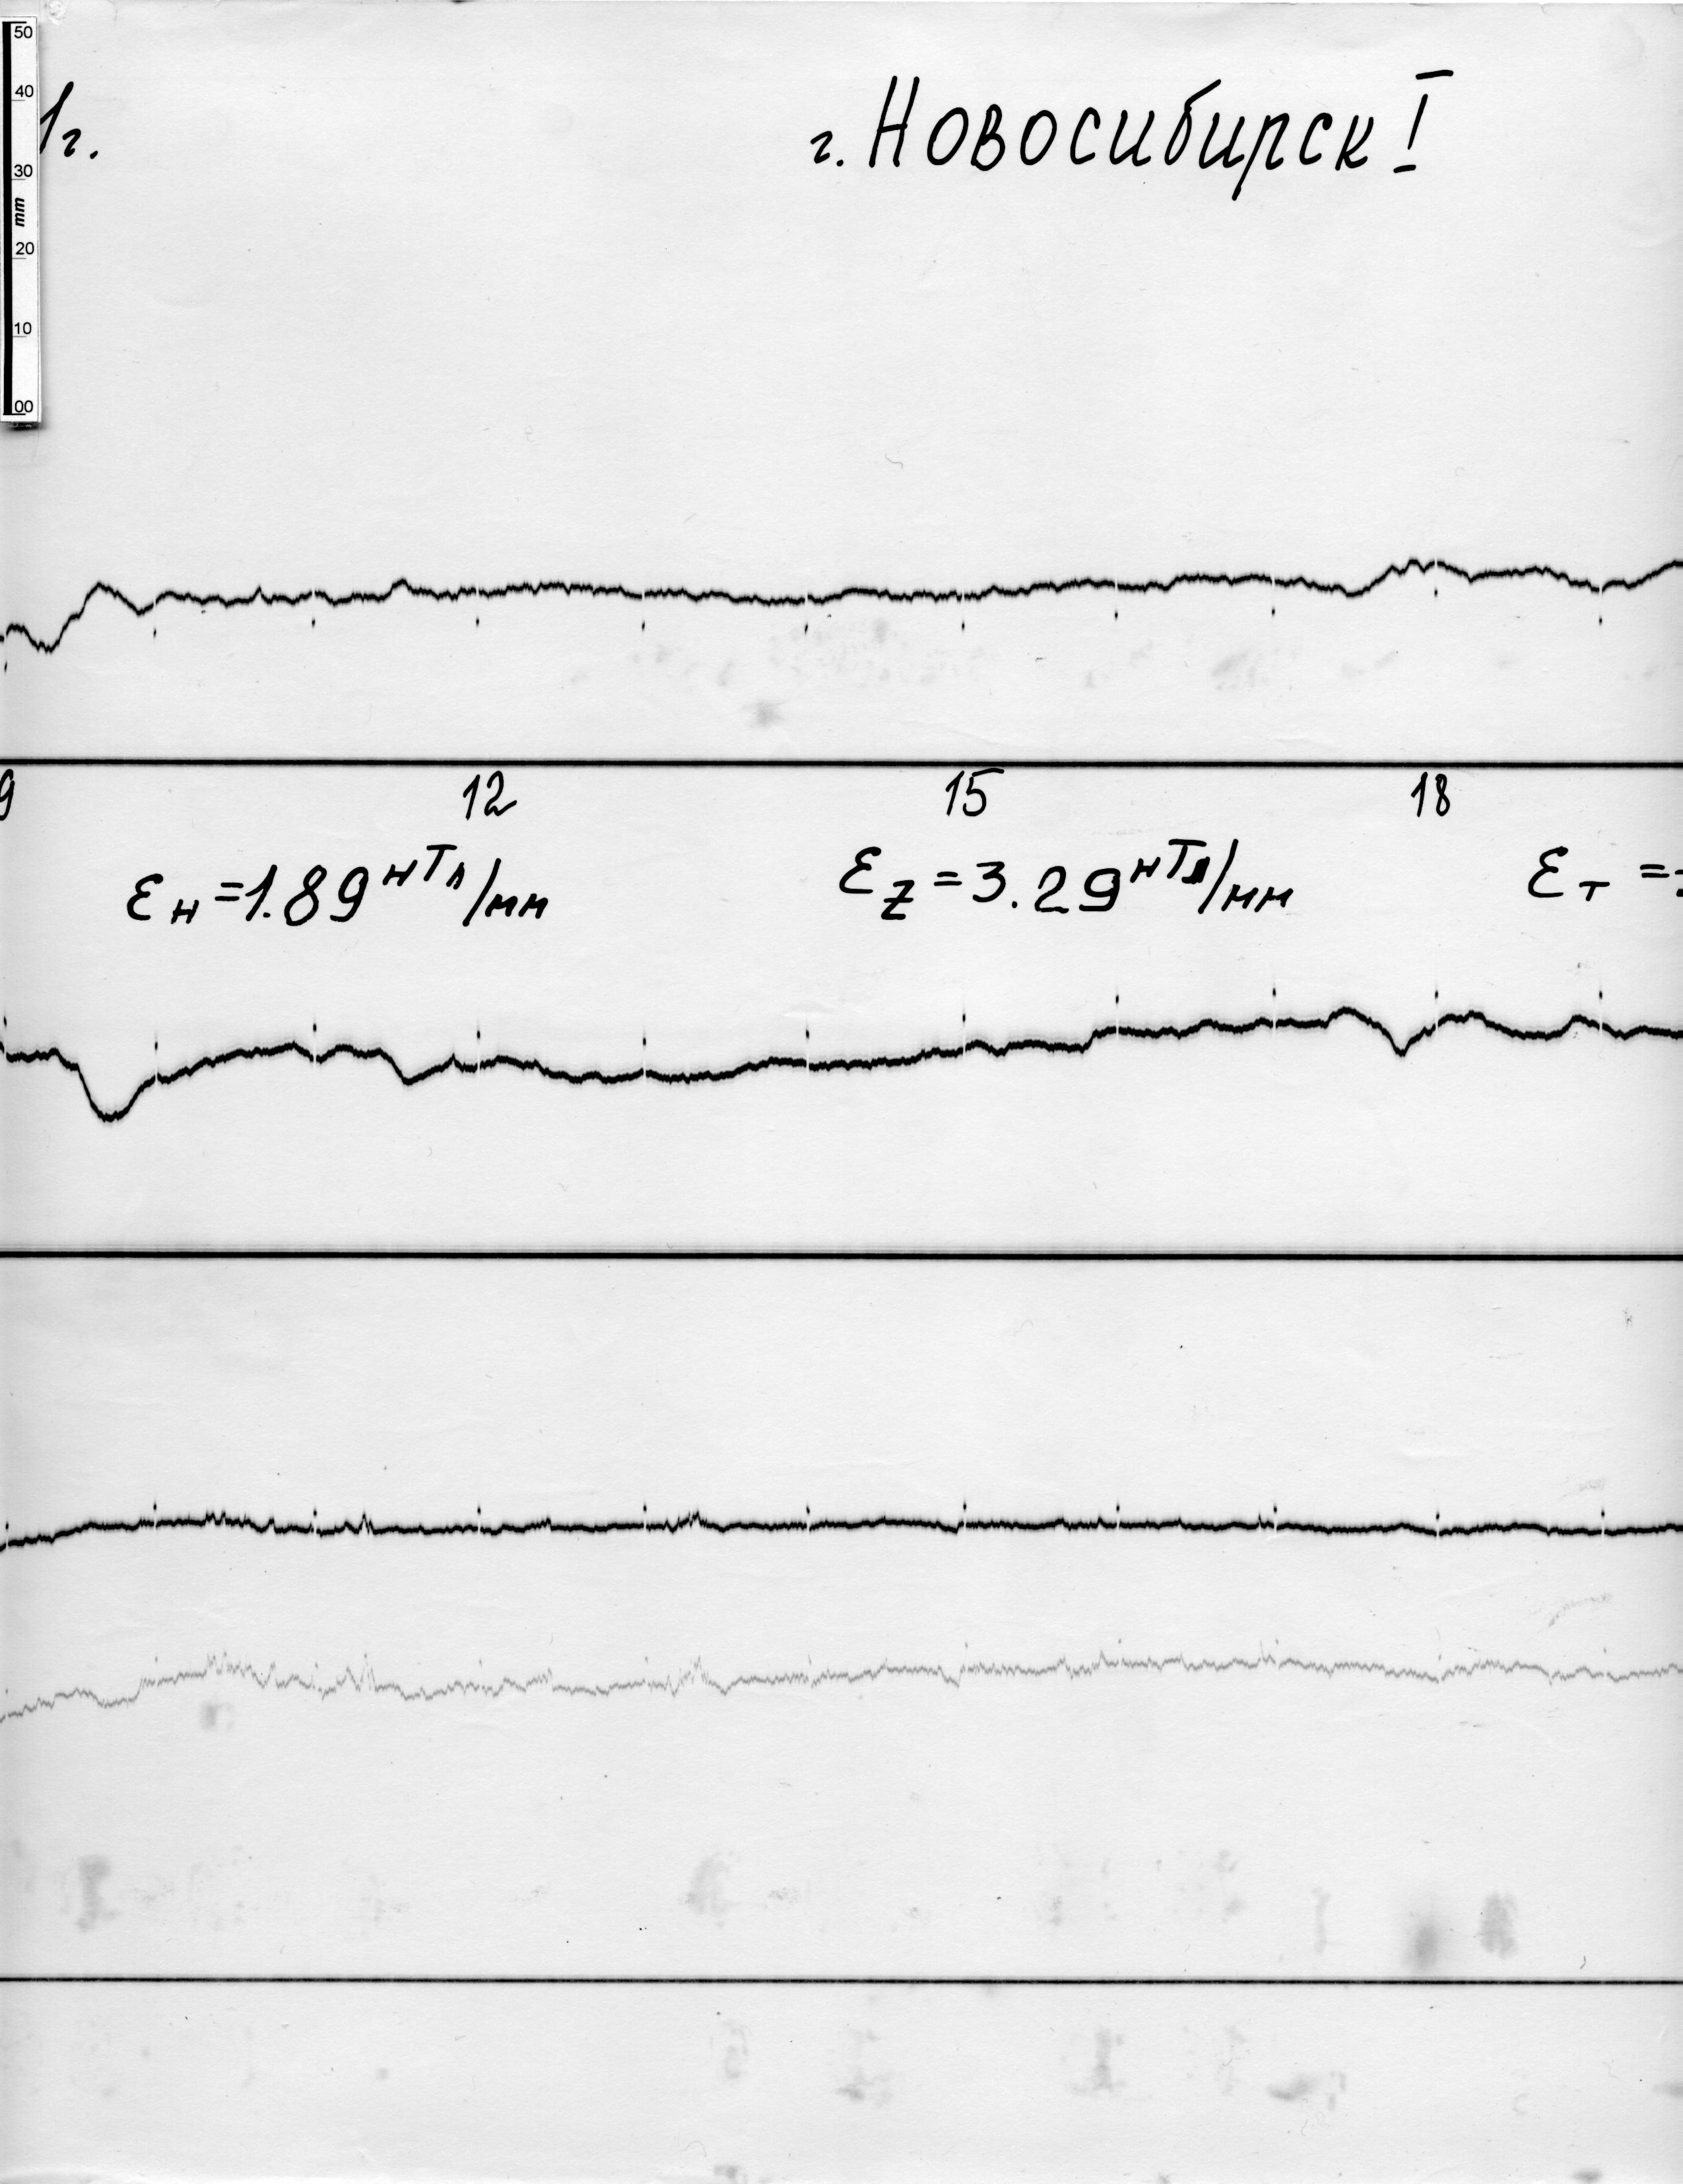 50
40
30
mm
20
10
00
1г.
г. Новосибирск I
9 12 15 18
εн =1.89 нТл/мм
εz = 3.29 нТл/мм
εт =